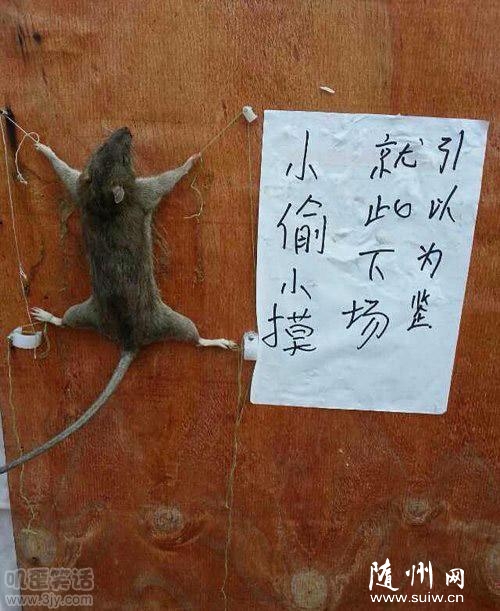 小偷小摸
就此下场
引以为鉴
叽歪笑话
www.3jy.com
随州网
www.suiw.cn